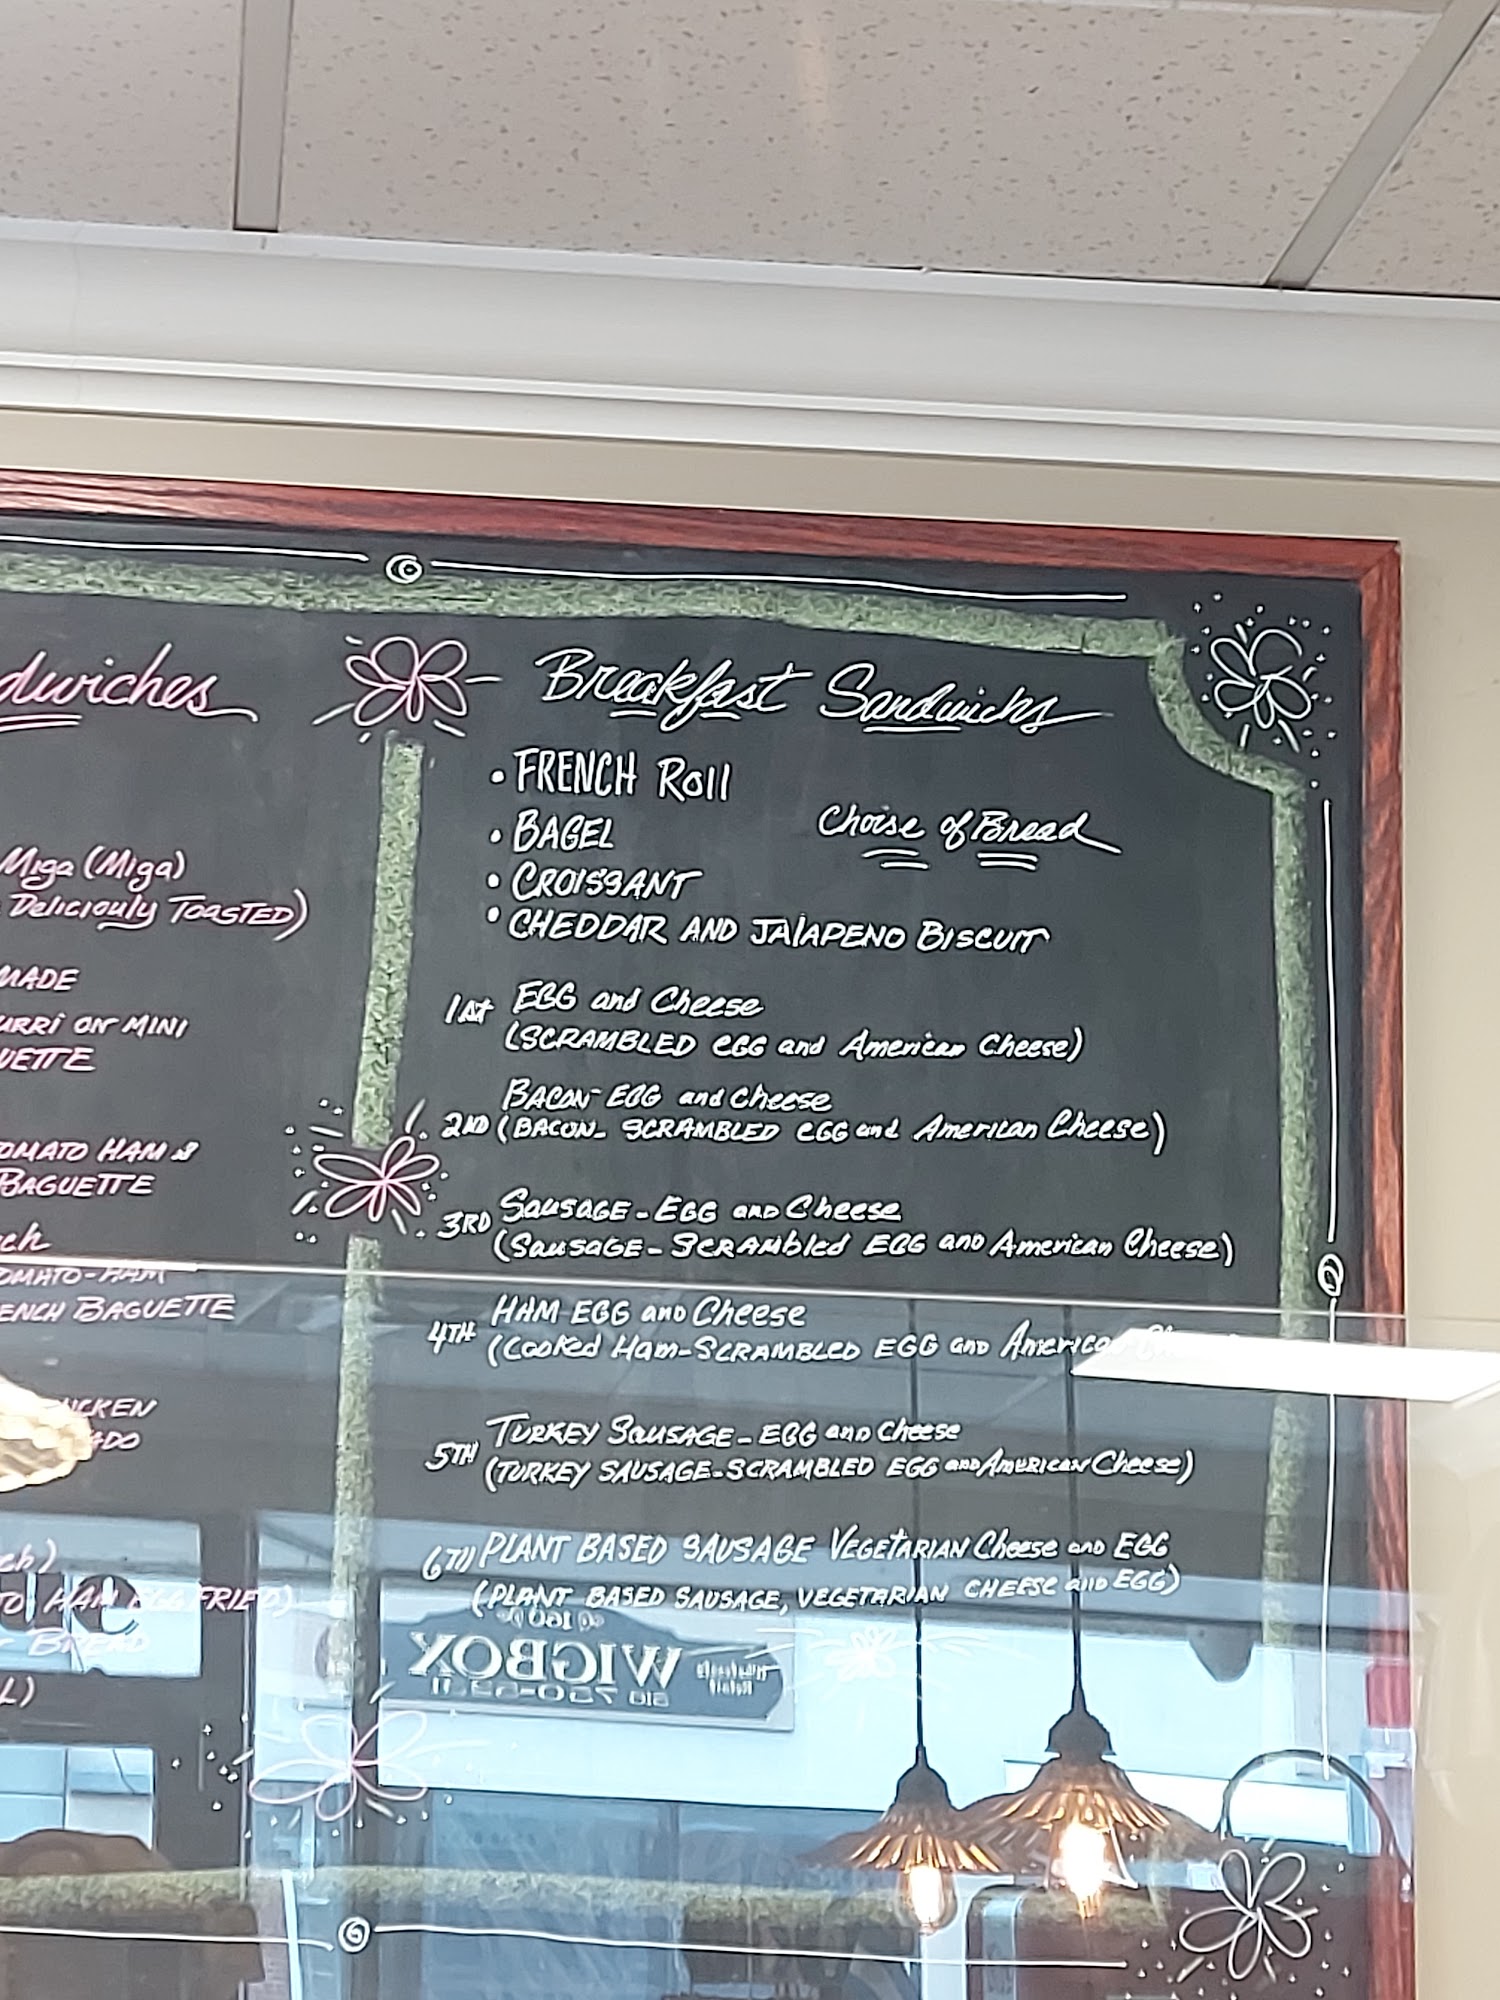 dwiches
Miga (Miga)
Deliciouly TOASTED)
MADE
URRI ON MINI
UETTE
OMATO HAM &
BAGUETTE
ch
OMATO-HAM
ENCH BAGUETTE
ICKEN
ADO
ch)
TO HAM EGG FRIED)
BREAD
L)
Breakfast Sandwichs
• FRENCH Roll
• BAGEL
Choise of Bread
• CROISSANT
• CHEDDAR AND JALAPENO BISCUIT
1st EGG and Cheese
(SCRAMBLED EGG and American Cheese)
BACON-EGG and cheese
2ND (BACON- SCRAMBLED EGG and American Cheese)
3RD Sausage-EGG AND Cheese
(Sausage-Scrambled EGG AND American Cheese)
4TH HAM EGG AND Cheese
(Cooked Ham-SCRAMBLED EGG AND American
5TH TURKEY SAUSAGE-EGG AND Cheese
(TURKEY SAUSAGE-SCRAMBLED EGG AND AMERICAN Cheese)
6TH PLANT BASED SAUSAGE VEGETARIAN Cheese AND EGG
(PLANT BASED SAUSAGE, VEGETARIAN CHEESE AND EGG)
WIGBOX